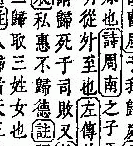 也詩周南之子于
方從外至也左傳
請歸死于司敗又
私惠不歸德註
歸取三姓女也